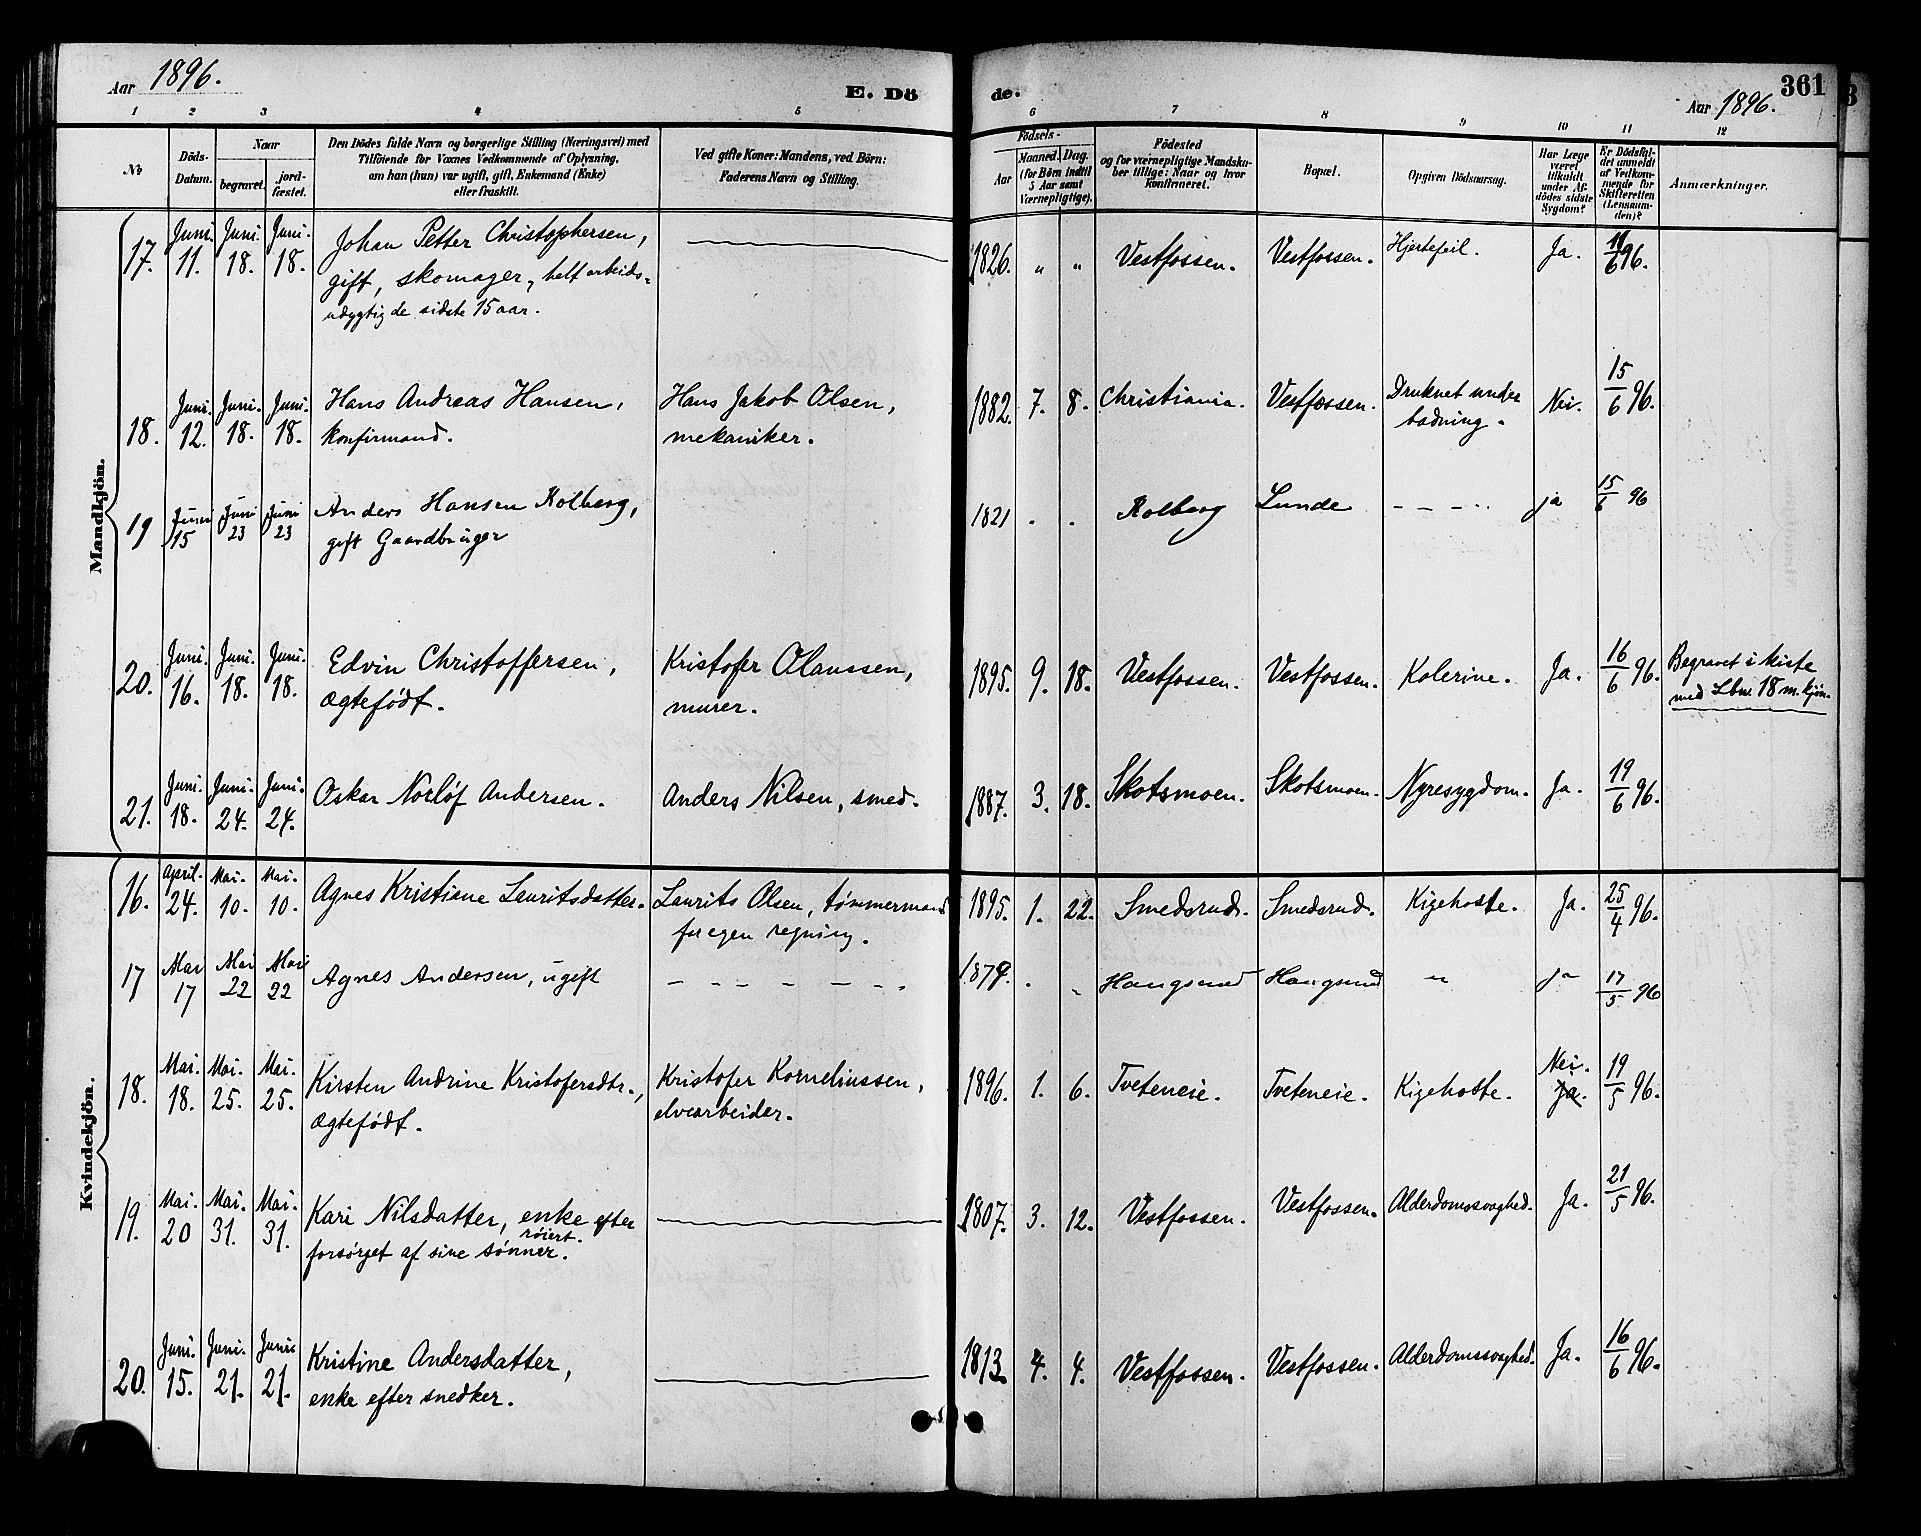 Aar 1896.
E. Dö
de.
Aar 1896.
361
1 2 3 4 5 6 7 8 9 10 11 12
No
Döds-Datum.
Naar
begravet.
jord-fæstet.
Den Dödes fulde Navn og borgerlige Stilling (Næringsvei) med
Tilföiende for Voxnes Vedkommende af Oplysning,
om han (hun) var ugift, gift, Enkemand (Enke)
eller fraskilt.
Ved gifte Koner: Mandens, ved Börn:
Faderens Navn og Stilling.
Födsels-
Aar
Maaned. Dag.
(for Börn indtil
5 Aar samt
Værnepligtige).
Födested
og for værnepligtige Mandska-
ber tillige: Naar og hvor
Konfirmeret.
Bopæl.
Opgiven Dödsaarsag.
Har Læge
været
tilkaldt
under Af-
dödes sidste
Sygdom?
Er Dödsfal-
det anmeldt
af Vedkom-
mende for
Skifteretten
(Lensman-
den)?
Anmærkninger.
Mandkjön.
17. Juni. 11. Juni. 18. Juni. 18. Johan Petter Christophersen, 1826. „ „ Vestfossen. Vestfossen. Hjertefeil. Ja. 11/6 96.
gift, skomager, helt arbeids-
udygtig de sidste 15 aar.
18. Juni. 12. Juni. 18. Juni. 18. Hans Andreas Hansen, Hans Jakob Olsen, 1882. 7. 8. Christiania. Vestfossen. Druknet under Nei. 15/6 96.
konfirmand. mekaniker. badning.
19 Juni 15 Juni 23 Juni 23 Anders Hansen Kolberg, 1821 . . Kolberg Lunde - - - - ja 15/6 96
gift Gaardbruger
20. Juni. 16. Juni. 18. Juni. 18. Edvin Christoffersen, Kristofer Olaussen, 1895. 9. 18. Vestfossen. Vestfossen. Kolerine. Ja. 16/6 96. Begravet i kiste
ægtefödt. murer. med Lbn. 18 m.kjön.
21. Juni. 18. Juni. 24. Juni. 24. Oskar Norløf Andersen. Anders Nilsen, smed. 1887. 3. 18. Skotsmoen. Skotsmoen. Nyresygdom. Ja. 19/6 96.
Kvindekjön.
16. April. 24. Mai. 10. Mai. 10. Agnes Kristiane Lauritsdatter. Laurits Olsen, tømmermand 1895. 1. 22. Smedsrud. Smedsrud. Kigehoste. Ja. 25/4 96.
for egen regning.
17 Mai 17 Mai 22 Mai 22 Agnes Andersen, ugift - - - - - - - . „ Haugsund Haugsund „ ja 17/5 96
18. Mai. 18. Mai. 25. Mai. 25. Kirsten Andrine Kristofersdtr., Kristofer Korneliussen, 1896. 1. 6. Tveteneie. Tveteneie. Kigehoste. Nei. Ja. 19/5 96.
ægtefödt. elvearbeider.
19. Mai. 20 Mai. 31. Mai. 31. Kari Nilsdatter, enke efter 1807. 3. 12. Vestfossen. Vestfossen. Alderdomssvaghed. Ja. 21/5 96.
forsørget af sine sønner.
20. Juni. 15. Juni. 21. Juni 21. Kristine Andersdatter, 1813. 4. 4. Vestfossen. Vestfossen. Alderdomssvaghed. Ja. 16/6 96.
enke efter snedker.